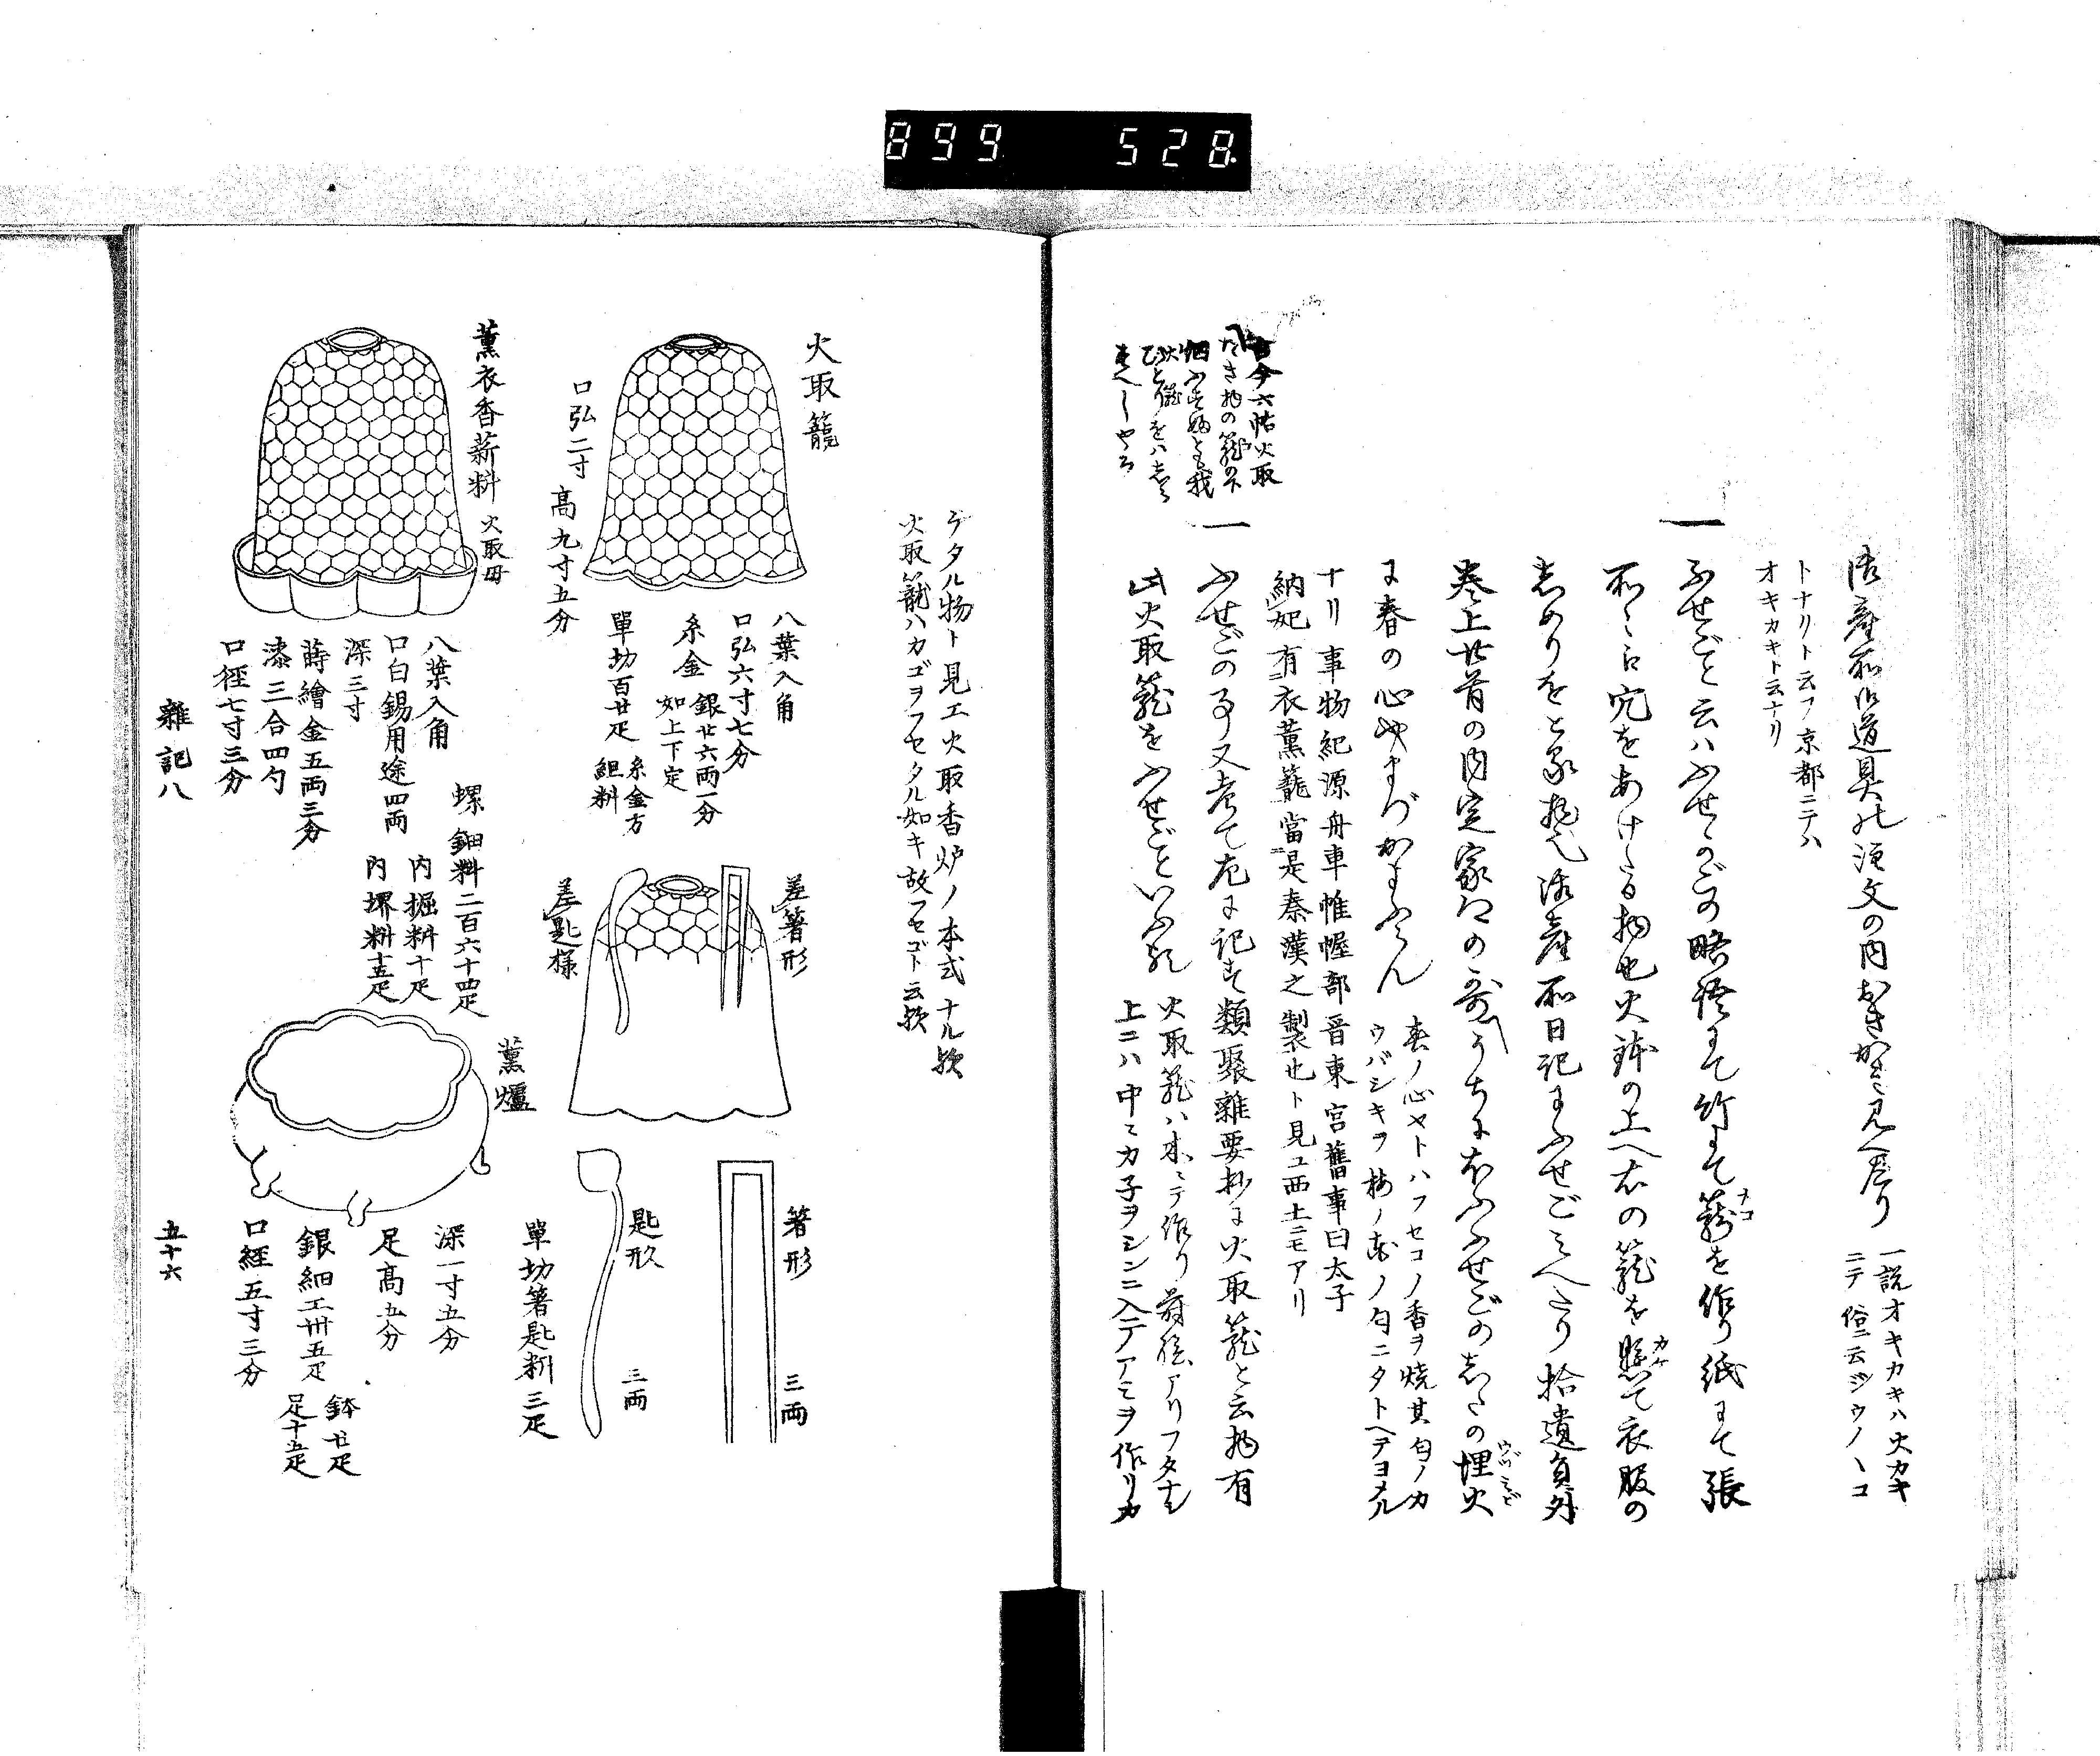 899 528.
御産所御道具の注文の内おきかき見へたり
一説オキカキハ火カキ
ニテ俗ニ云ジウノノコ
トナリト云フ京都ニテハ
オキカキト云ナリ
一
ふせごと云ハふせかごの略語にて竹にて籠を作り紙にて張
所々に穴をあけたる物也火鉢の上へ右の籠を懸て衣服の
カケ
しめりをとる物也御産所日記にふせごみへたり拾遺員外
巻上廿首の内定家卿の哥うちにほふふせごのしたの埋火
ウヅミビ
に春の心やまづかよふらん
春ノ心ヤトハフセコノ香ヲ焼其匂ノカ
ウバシキヲ梅ノ花ノ匂ニタトヘテヨメル
ナリ事物紀源舟車帷幄部晋東宮舊事曰太子
納妃有衣薫籠當是秦漢之製也ト見ユ西土ニモアリ
一
ふせごの事又考て左に記す類聚雜要抄に火取籠と云物有
此火取籠をふせごといふ歟
火取籠ハ木ニテ作リ蒔絵アリフタモ
上ニハ中ニカ子ヲシンニ入テアミヲ作リカ
古今六帖火取
たき物の籠の下
ひとり籠をハ
デタル物ト見エ火取香炉ノ本式ナル歟
火取籠ハカゴヲフセタル如キ故フセゴト云歟
火取籠
八葉入角
口弘六寸七分
糸金 銀廿六両一分
如上下定
單功百廿疋 糸金方
組料
口弘二寸 高九寸五分
薫衣香薪料 火取母
八葉入角
口白錫用途四両
深三寸
蒔繪金五両三分
漆三合四勺
口径七寸三分
螺鈿料二百六十四疋
内掘料十疋
内堺料十五疋
差箸形
差匙様
箸形
三両
匙形
三両
單功箸匙料三疋
薫爐
深一寸五分
足高五分
銀細工卅五疋
鉢廿疋
足十五疋
口経五寸三分
雜記八
五十六